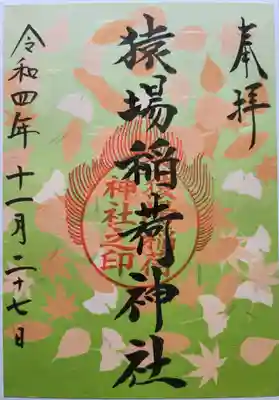 奉拝
猿場稲荷神社
令和四年十一月二十七日